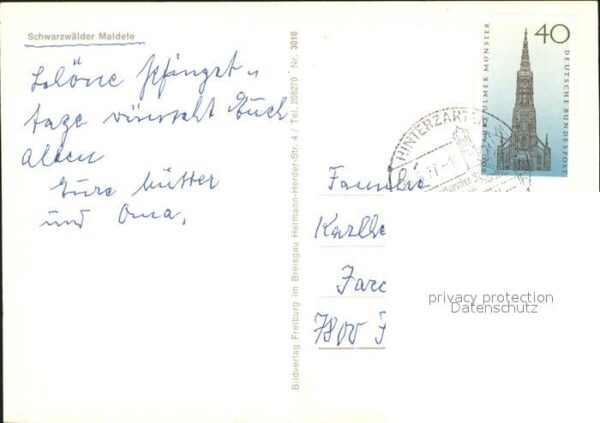 Schwarzwälder Maidele
Schöne Pfingst-
tage wünscht Euch
Allen
Eure Mutter
und Oma.
Bildverlag Freiburg im Breisgau Hermann-Herder-Str. 4 / Tel. 209270 Nr. 3010
40
ULMER MÜNSTER
DEUTSCHE BUNDESPOST
HINTERZARTEN
Familie
Karlhe
7800
privacy protection
Datenschutz